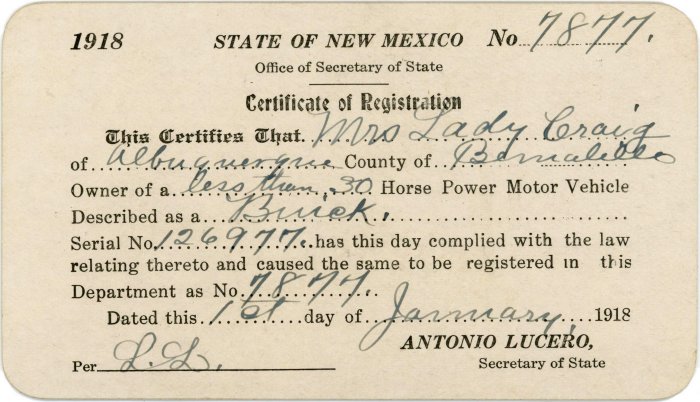 1918 STATE OF NEW MEXICO No 7877.
Office of Secretary of State
Certificate of Registration
This Certifies That Mrs Lady Craig
of Albuquerque County of Bernalillo
Owner of a less than 30 Horse Power Motor Vehicle
Described as a Buick.
Serial No. 126977. has this day complied with the law
relating thereto and caused the same to be registered in this
Department as No. 7877.
Dated this 1st day of January, 1918
ANTONIO LUCERO,
Per L.L. Secretary of State